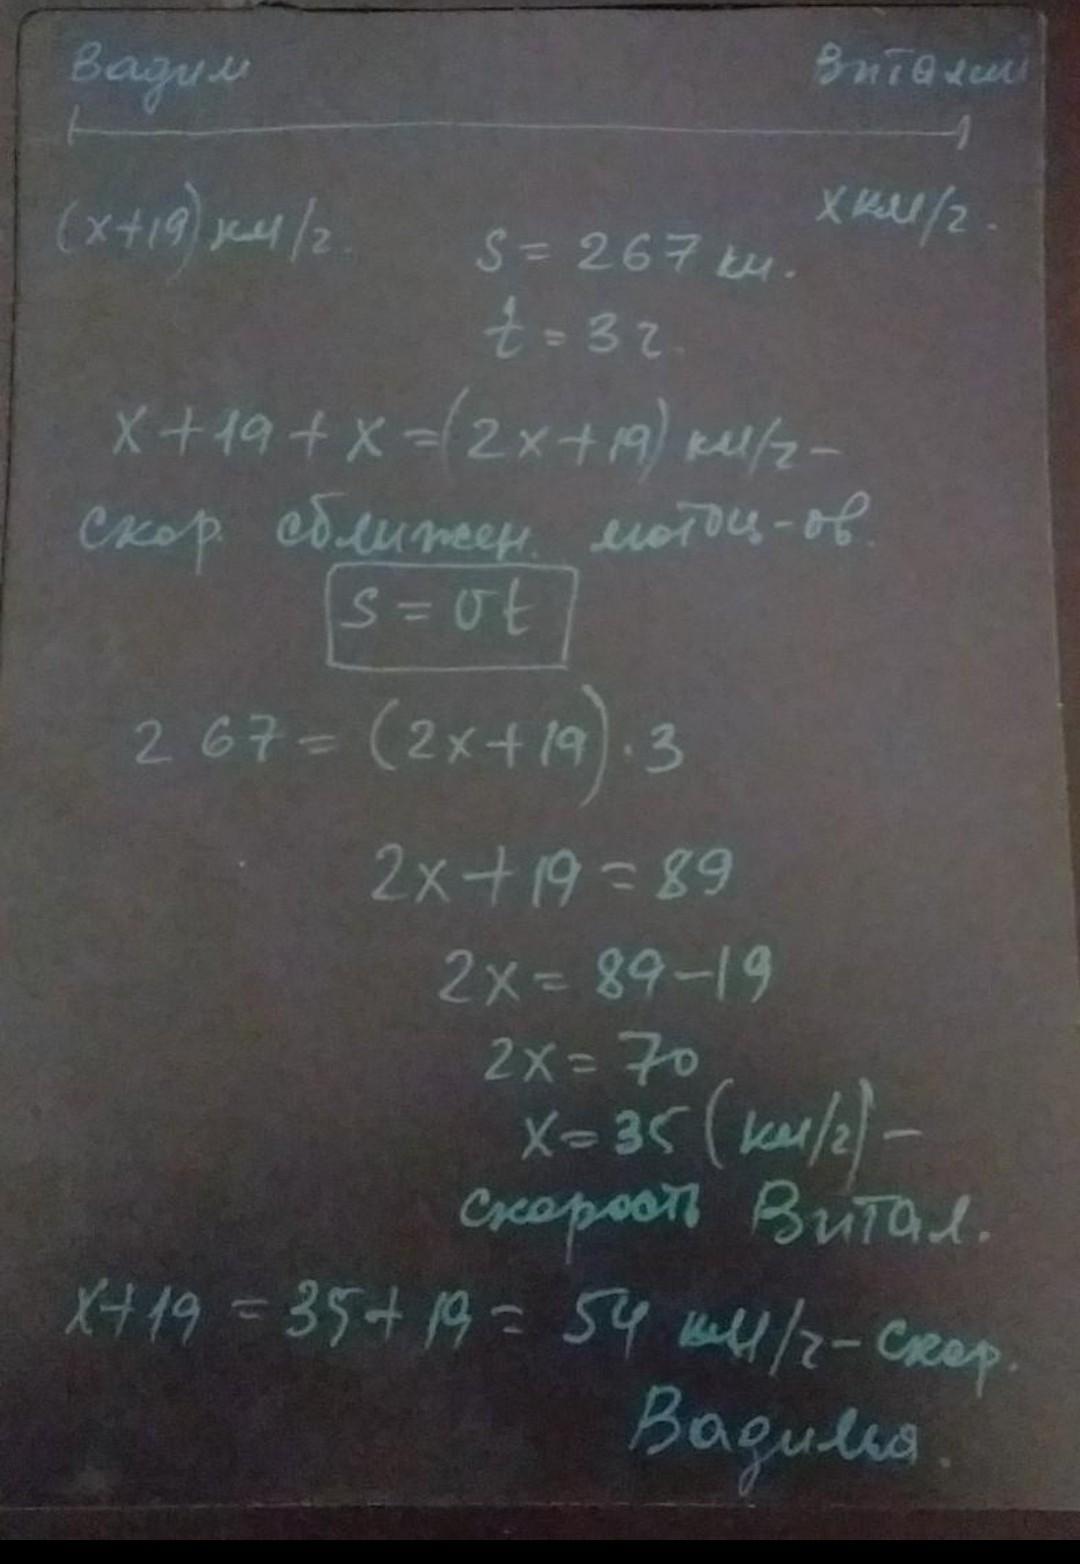 Вадим Виталий
(x+19) км/г. x км/г.
S = 267 км.
t = 3 г.
x + 19 + x = (2x + 19) км/г –
скор. сближен. мотоц-ов.
S = υt
267 = (2x + 19) · 3
2x + 19 = 89
2x = 89 – 19
2x = 70
x = 35 (км/г) –
скорость Витал.
x + 19 = 35 + 19 = 54 км/г – скор.
Вадима.